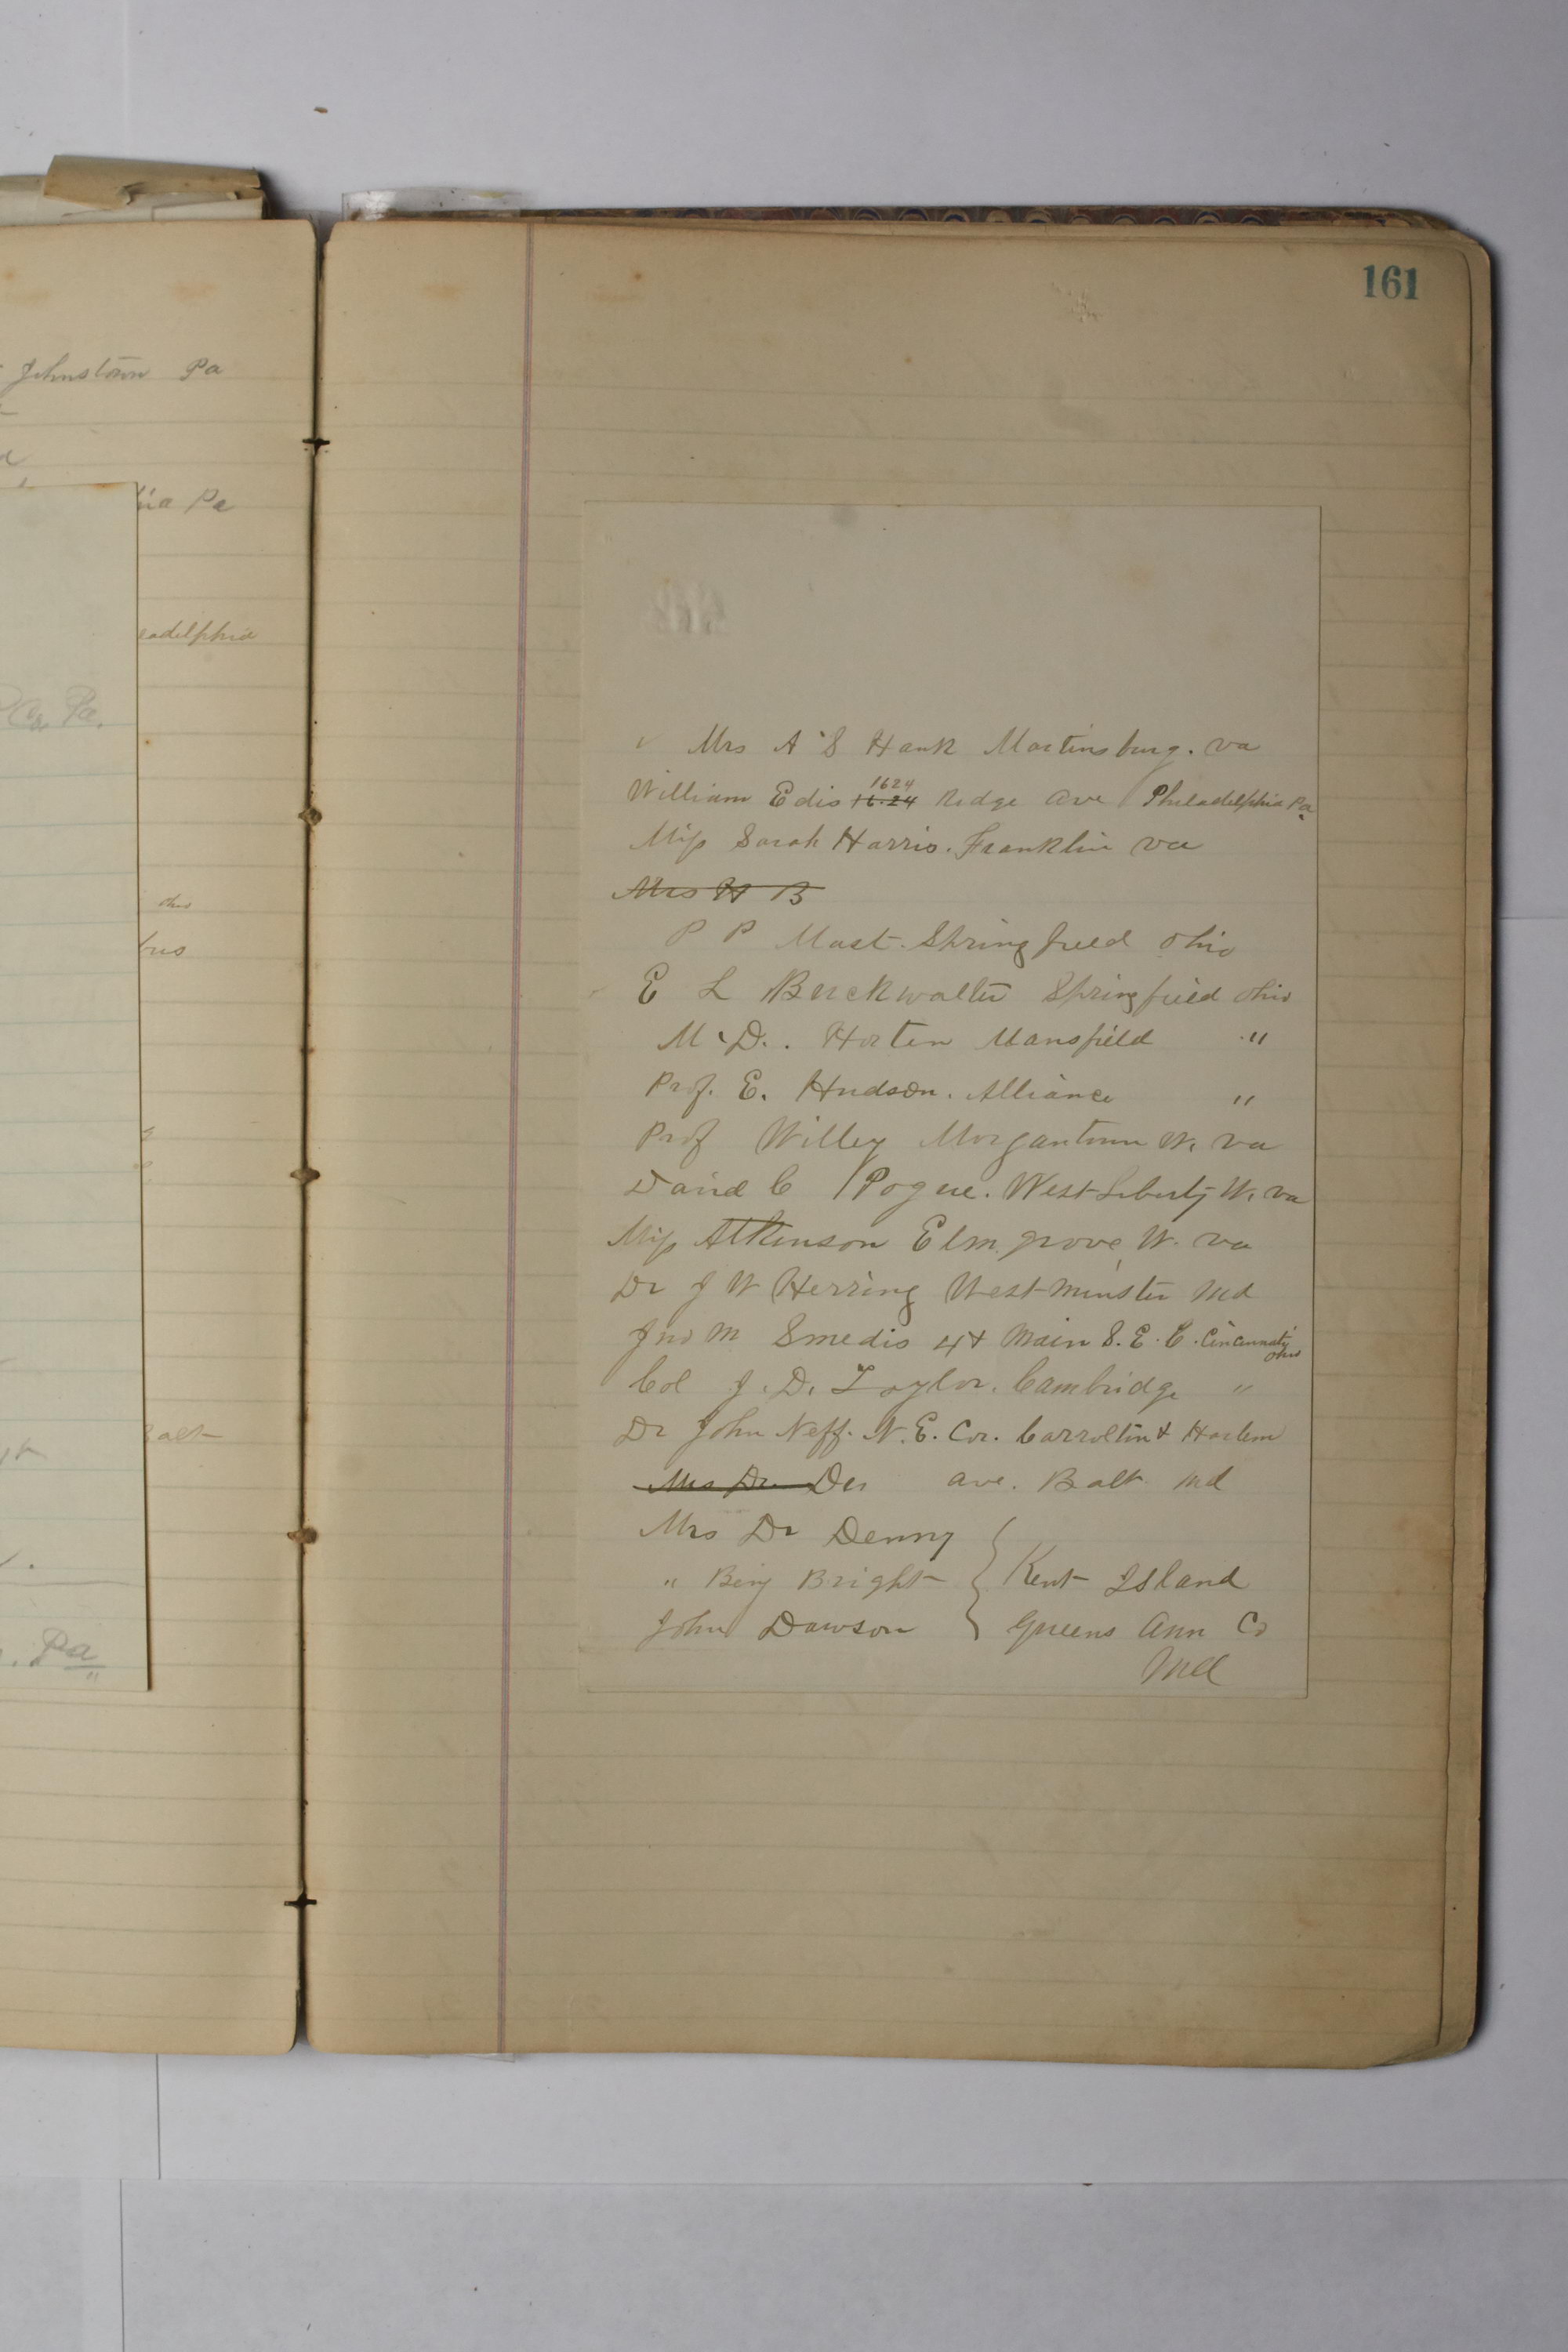 Johnstown Pa
Pa
adelphia
Co. Pa.
ohio
bus
Balt
Pa
"
161
✓ Mrs A S Hank Martinsburg. Va
1624
William Edis 16.24 Ridge Ave Philadelphia Pa
Miss Sarah Harris. Franklin Va
Mrs H B
P P Mast. Springfield Ohio
E L Buckwalter Springfield Ohio
M. D. Horten Mansfield "
Prof. E. Hudson. Alliance "
Prof Willey Morgantown W. Va
David C Pogue. West Liberty W. Va
Miss Atkinson Elm grove W. Va
Dr J W Herring Westminster Md
Jno M Smedis 4 & Main S. E. C. Cincinnati
Ohio
Col J. D. Taylor. Cambridge "
Dr John Neff. N. E. Cor. Carrolton & Harlem
Mrs Dr. Der ave. Balt. Md
Mrs Dr Denny
" Benj Bright Kent Island
John Dawson Queens Ann Co
Md